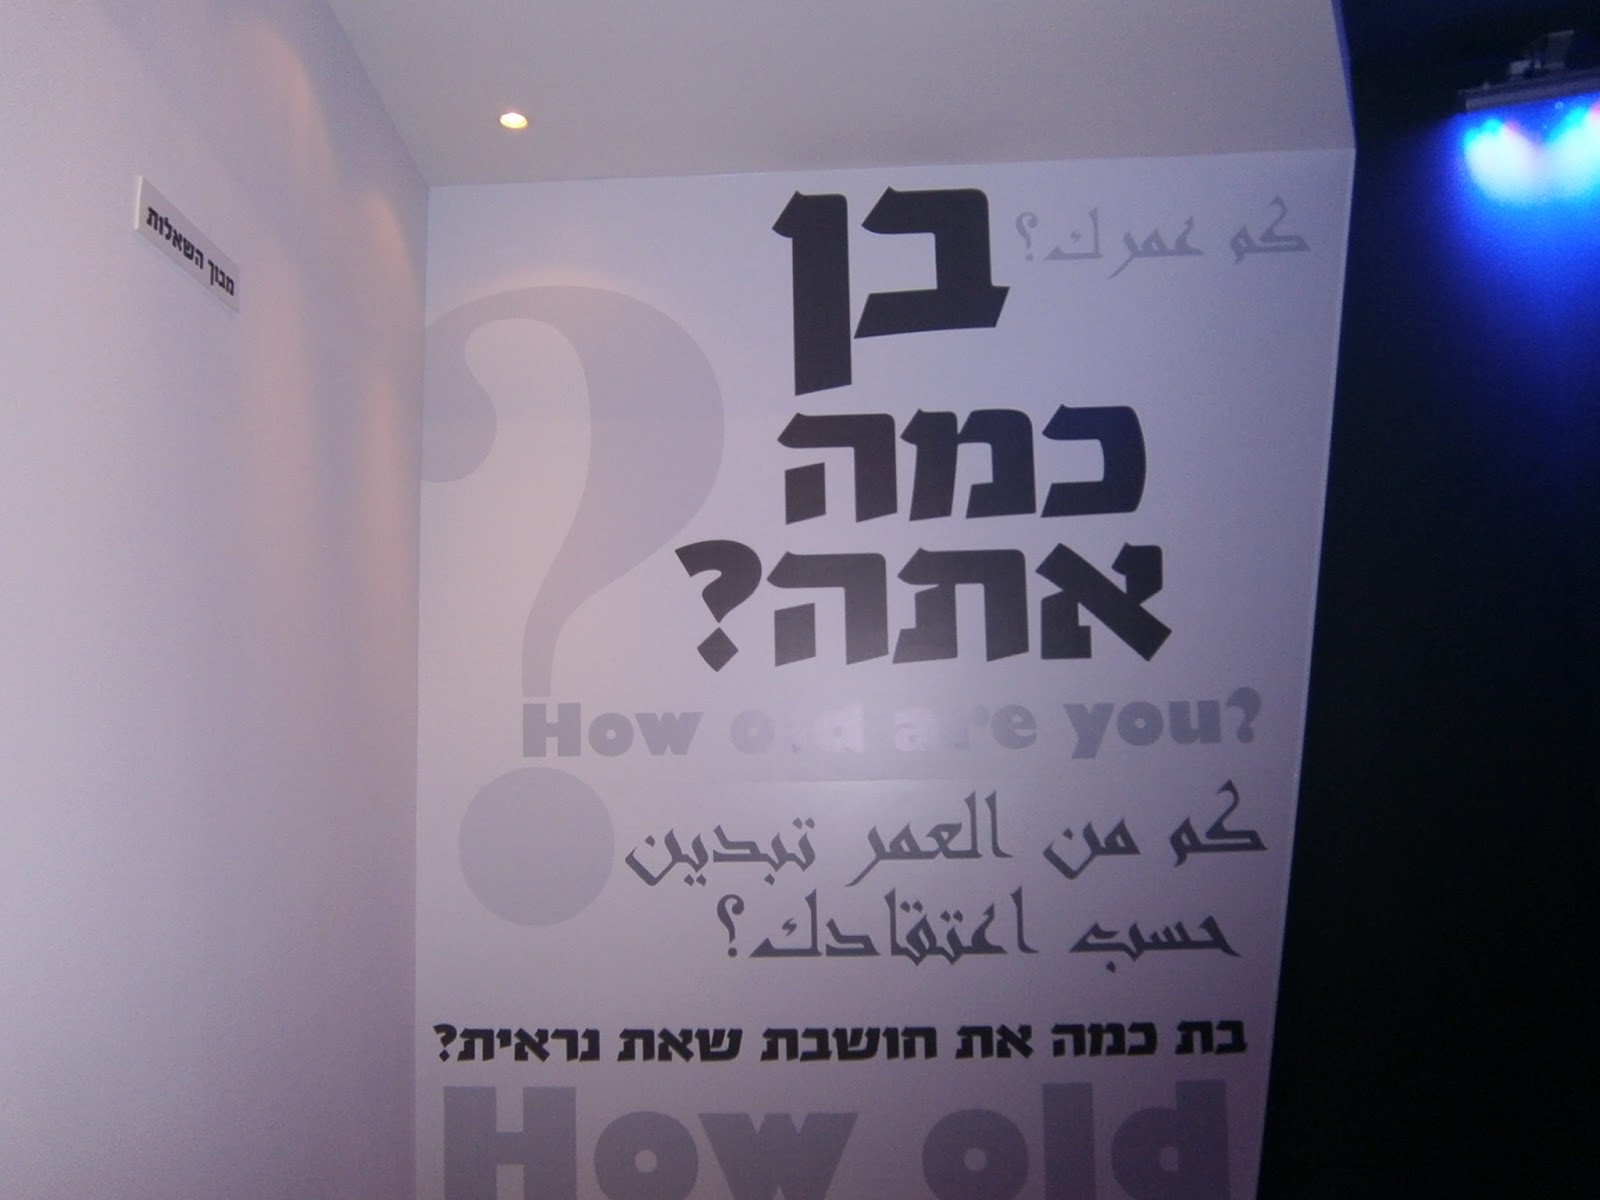 מבוך השאלות
كم عمرك؟
בן
כמה
אתה?
How old are you?
كم من العمر تبدين
حسب اعتقادك؟
בת כמה את חושבת שאת נראית?
How old